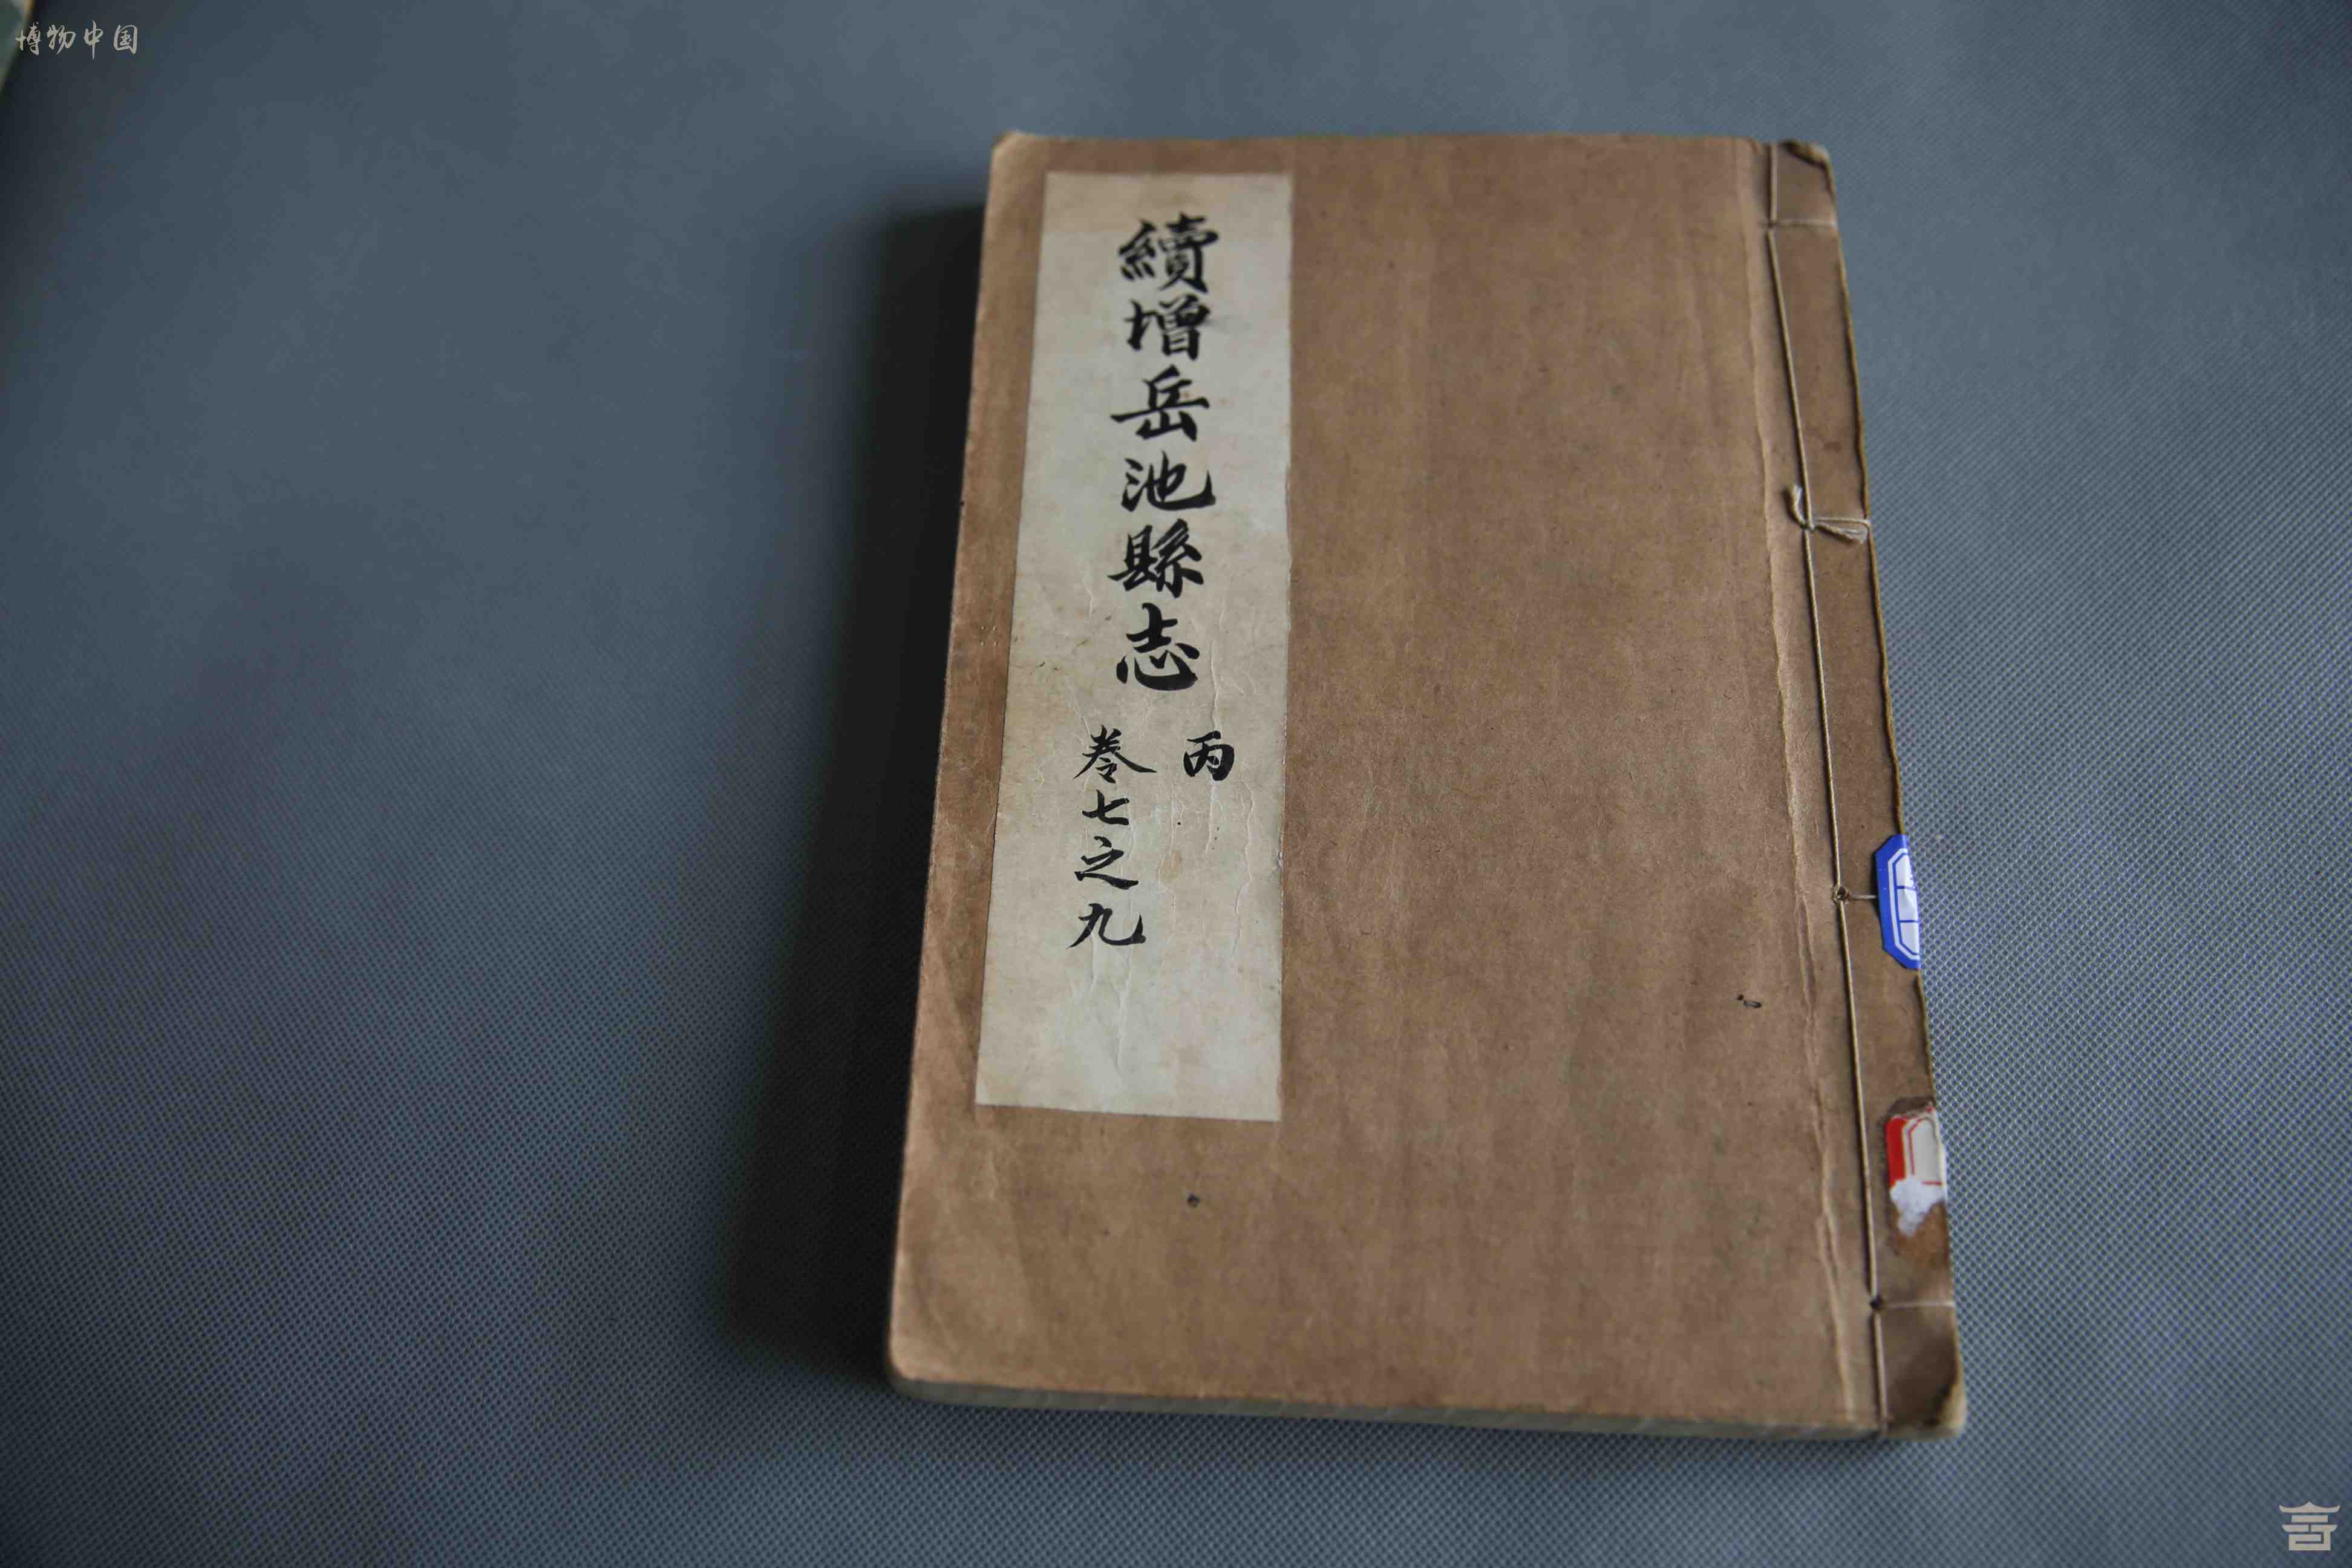 博物中国
續增岳池縣志
丙
卷七之九